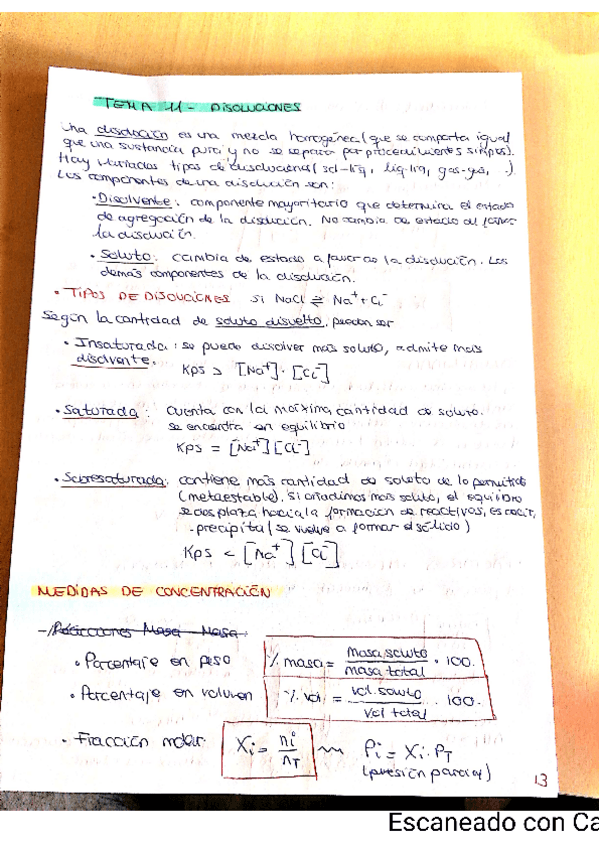 TEMA 11 - DISOLUCIONES
Una disolución es una mezcla homogénea (que se comporta igual
que una sustancia pura y no se separa por procedimientos simples).
Hay variados tipos de disoluciones (sol-líq, líq-líq, gas-gas, ...)
Los componentes de una disolución son:
· Disolvente: componente mayoritario que determina el estado
de agregación de la disolución. No cambia de estado al
la disolución.
· Soluto: cambia de estado a favor de la disolución. Los
demás componentes de la disolución.
· TIPOS DE DISOLUCIONES si NaCl ⇌ Na⁺ + Cl⁻
Según la cantidad de soluto disuelto, pueden ser
· Insaturada: se puede disolver más soluto, admite más
disolvente. Kps > [Na⁺]·[Cl⁻]
· Saturada: cuenta con la máxima cantidad de soluto.
se encuentra en equilibrio
Kps = [Na⁺][Cl⁻]
· Sobresaturada: contiene más cantidad de soluto de lo permitido
(metaestable). Si añadimos más soluto, el equilibrio
se desplaza hacia la formación de reactivos, es decir,
precipita (se vuelve a formar el sólido)
Kps < [Na⁺][Cl⁻]
MEDIDAS DE CONCENTRACIÓN
- Masa - Masa:
· Porcentaje en peso % masa = masa soluto / masa total · 100.
· Porcentaje en volumen % vol = vol. soluto / vol total · 100.
· Fracción molar Xi = ni / nT Pi = Xi · PT
(presión parcial)
13
Escaneado con Ca